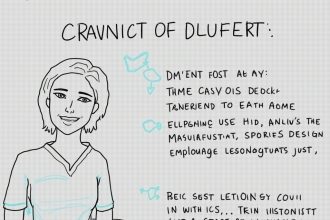 CRAVNICT OF DLUFERT:.
DM'ENT FOST At AY:
THME CASY OIS DEOCK
TANERIEND TO EATH AOME
ELLPGNING USE HID, ANLIU'S THE
MASUIRFUSTAT, SPORIES DESIGN
EMPLOUAGE LESONOGTUATS JUST,
BEIC SEST LETIOINGY COVII
IN WITH ICS,.. TRIN IIISTONISTT